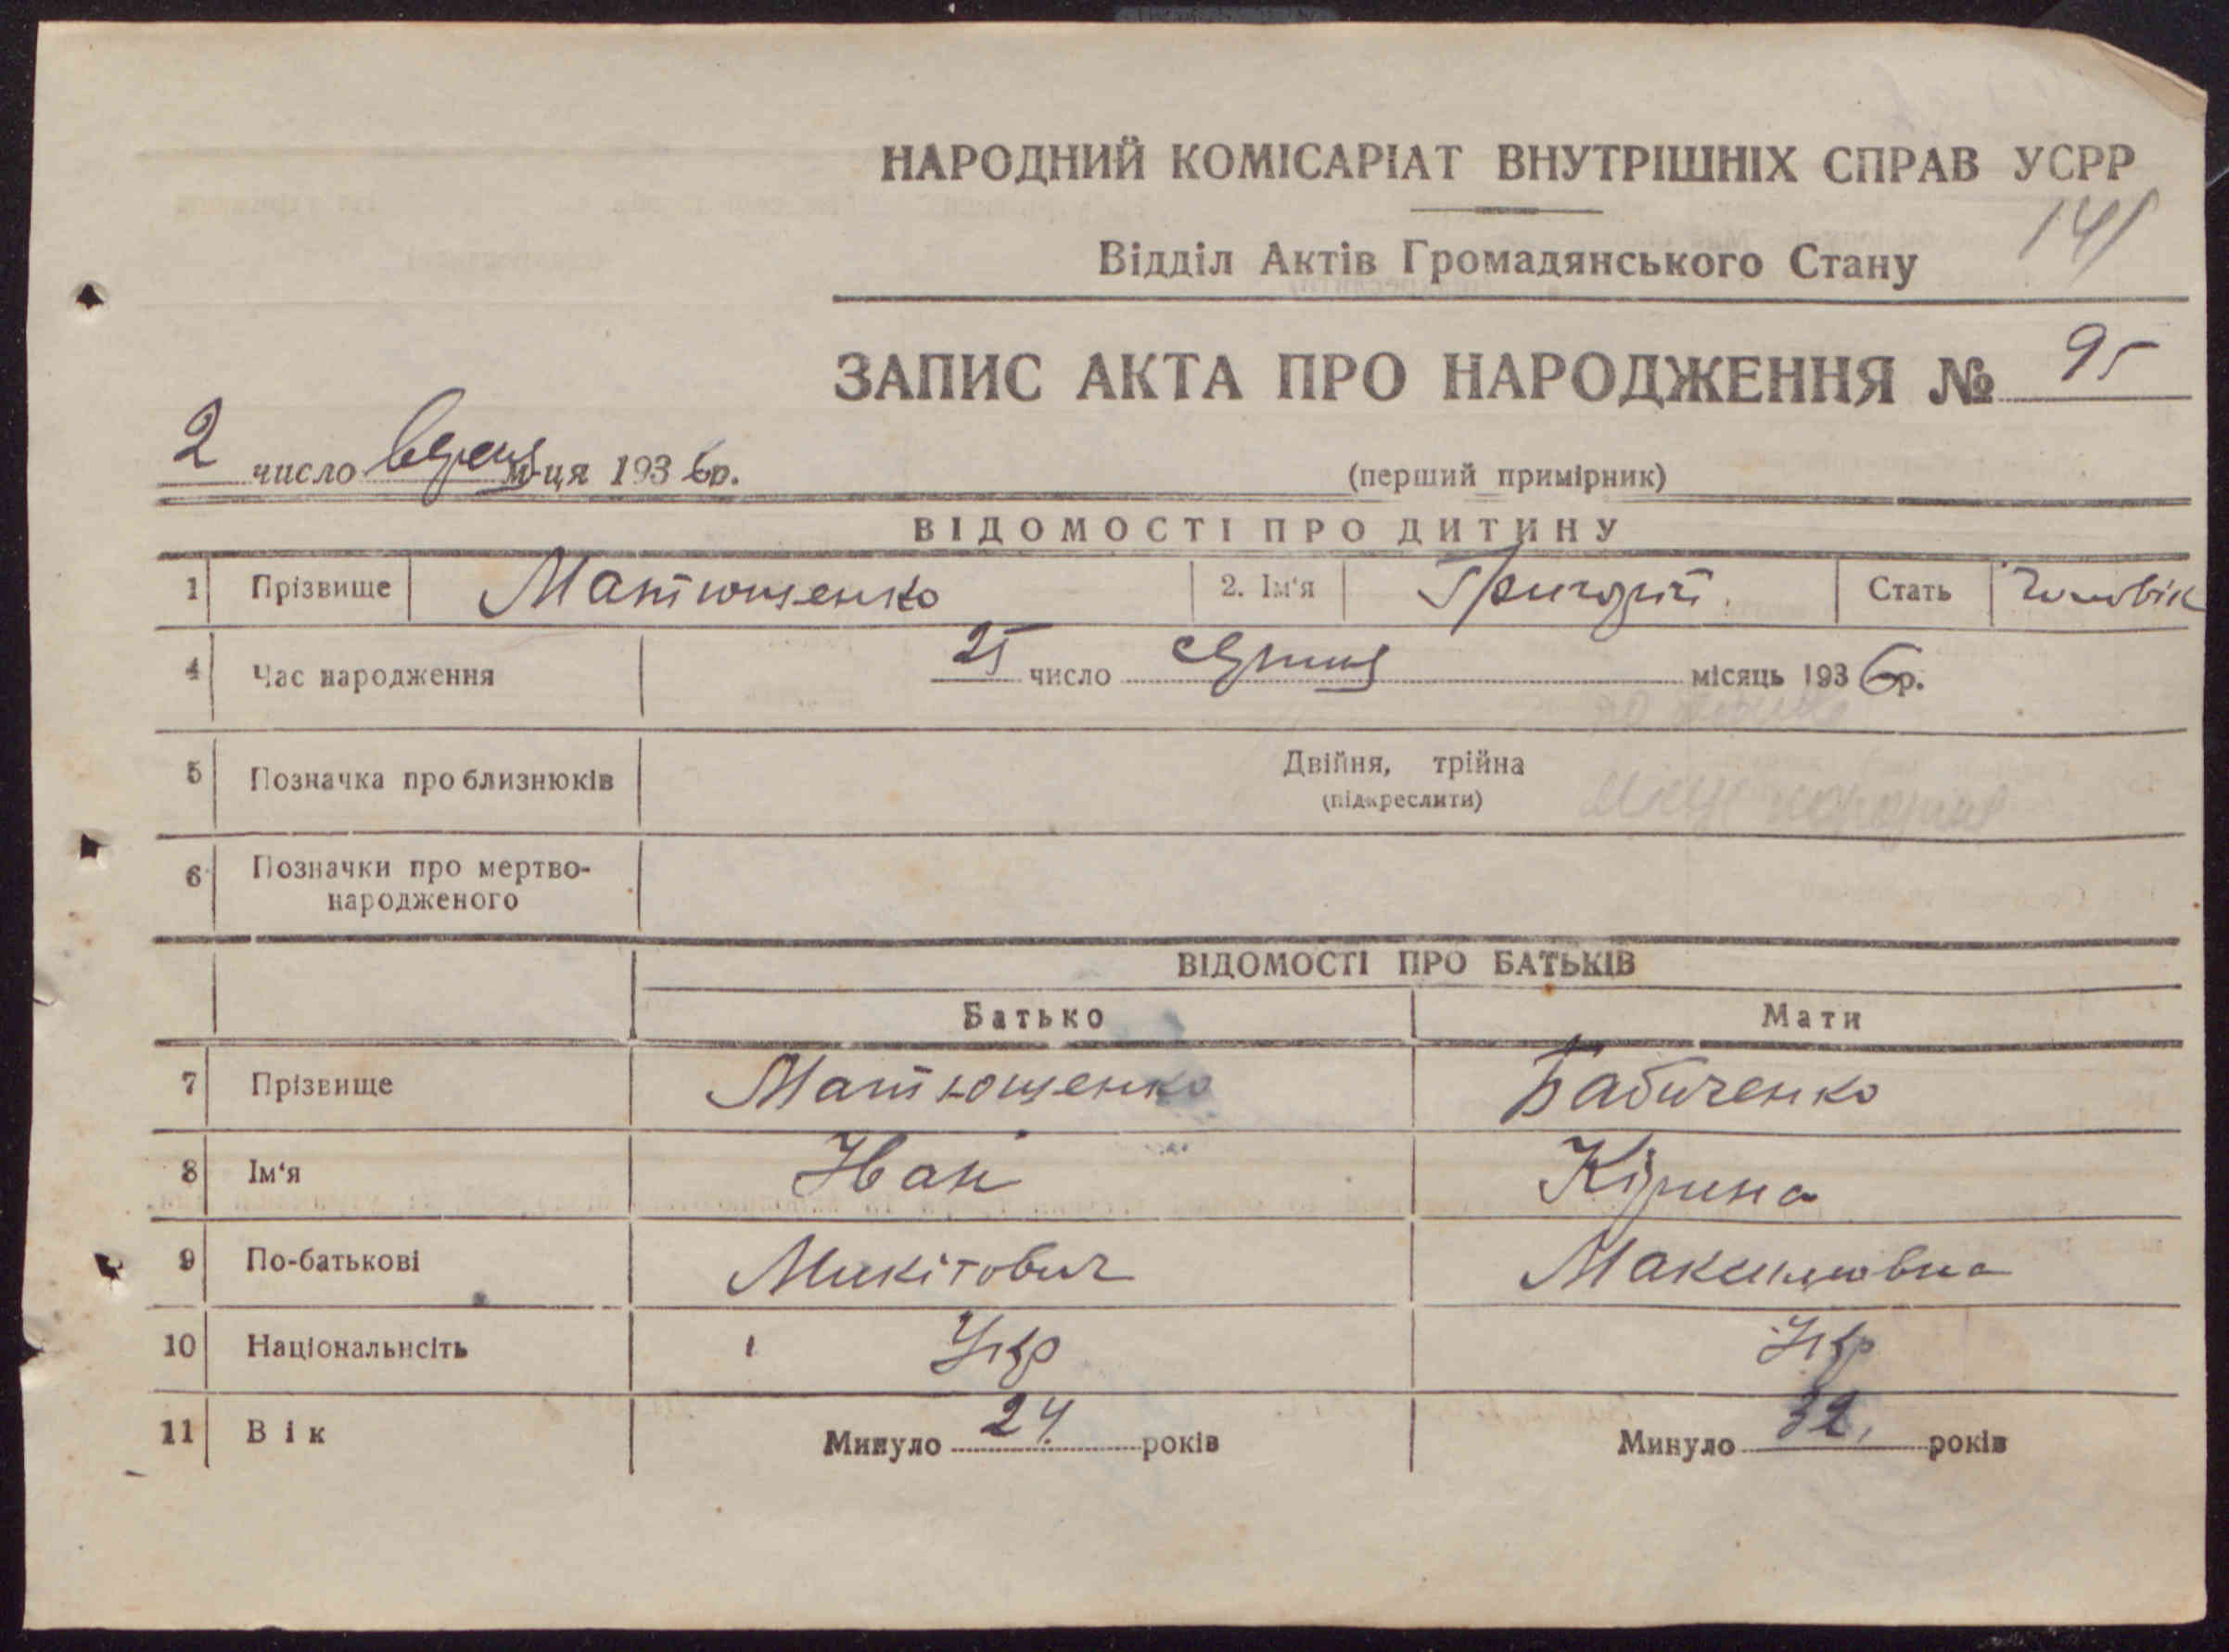 НАРОДНИЙ КОМІСАРІАТ ВНУТРІШНІХ СПРАВ УСРР
141
Відділ Актів Громадянського Стану
ЗАПИС АКТА ПРО НАРОДЖЕННЯ № 95
2 число вересня м-ця 1936 р.
(перший примірник)
ВІДОМОСТІ ПРО ДИТИНУ
1 Прізвище Матющенко 2. Ім'я Григорій Стать Чоловік
4 Час народження 25 число серпня місяць 1936 р.
5 Позначка про близнюків Двійня, трійна
(підкреслити)
6 Позначки про мертво-
народженого
ВІДОМОСТІ ПРО БАТЬКІВ
Батько Мати
7 Прізвище Матющенко Бабиченко
8 Ім'я Іван Кірина
9 По-батькові Микітович Максимовна
10 Національнсіть Укр Укр
11 Вік Минуло 24 років Минуло 32 років